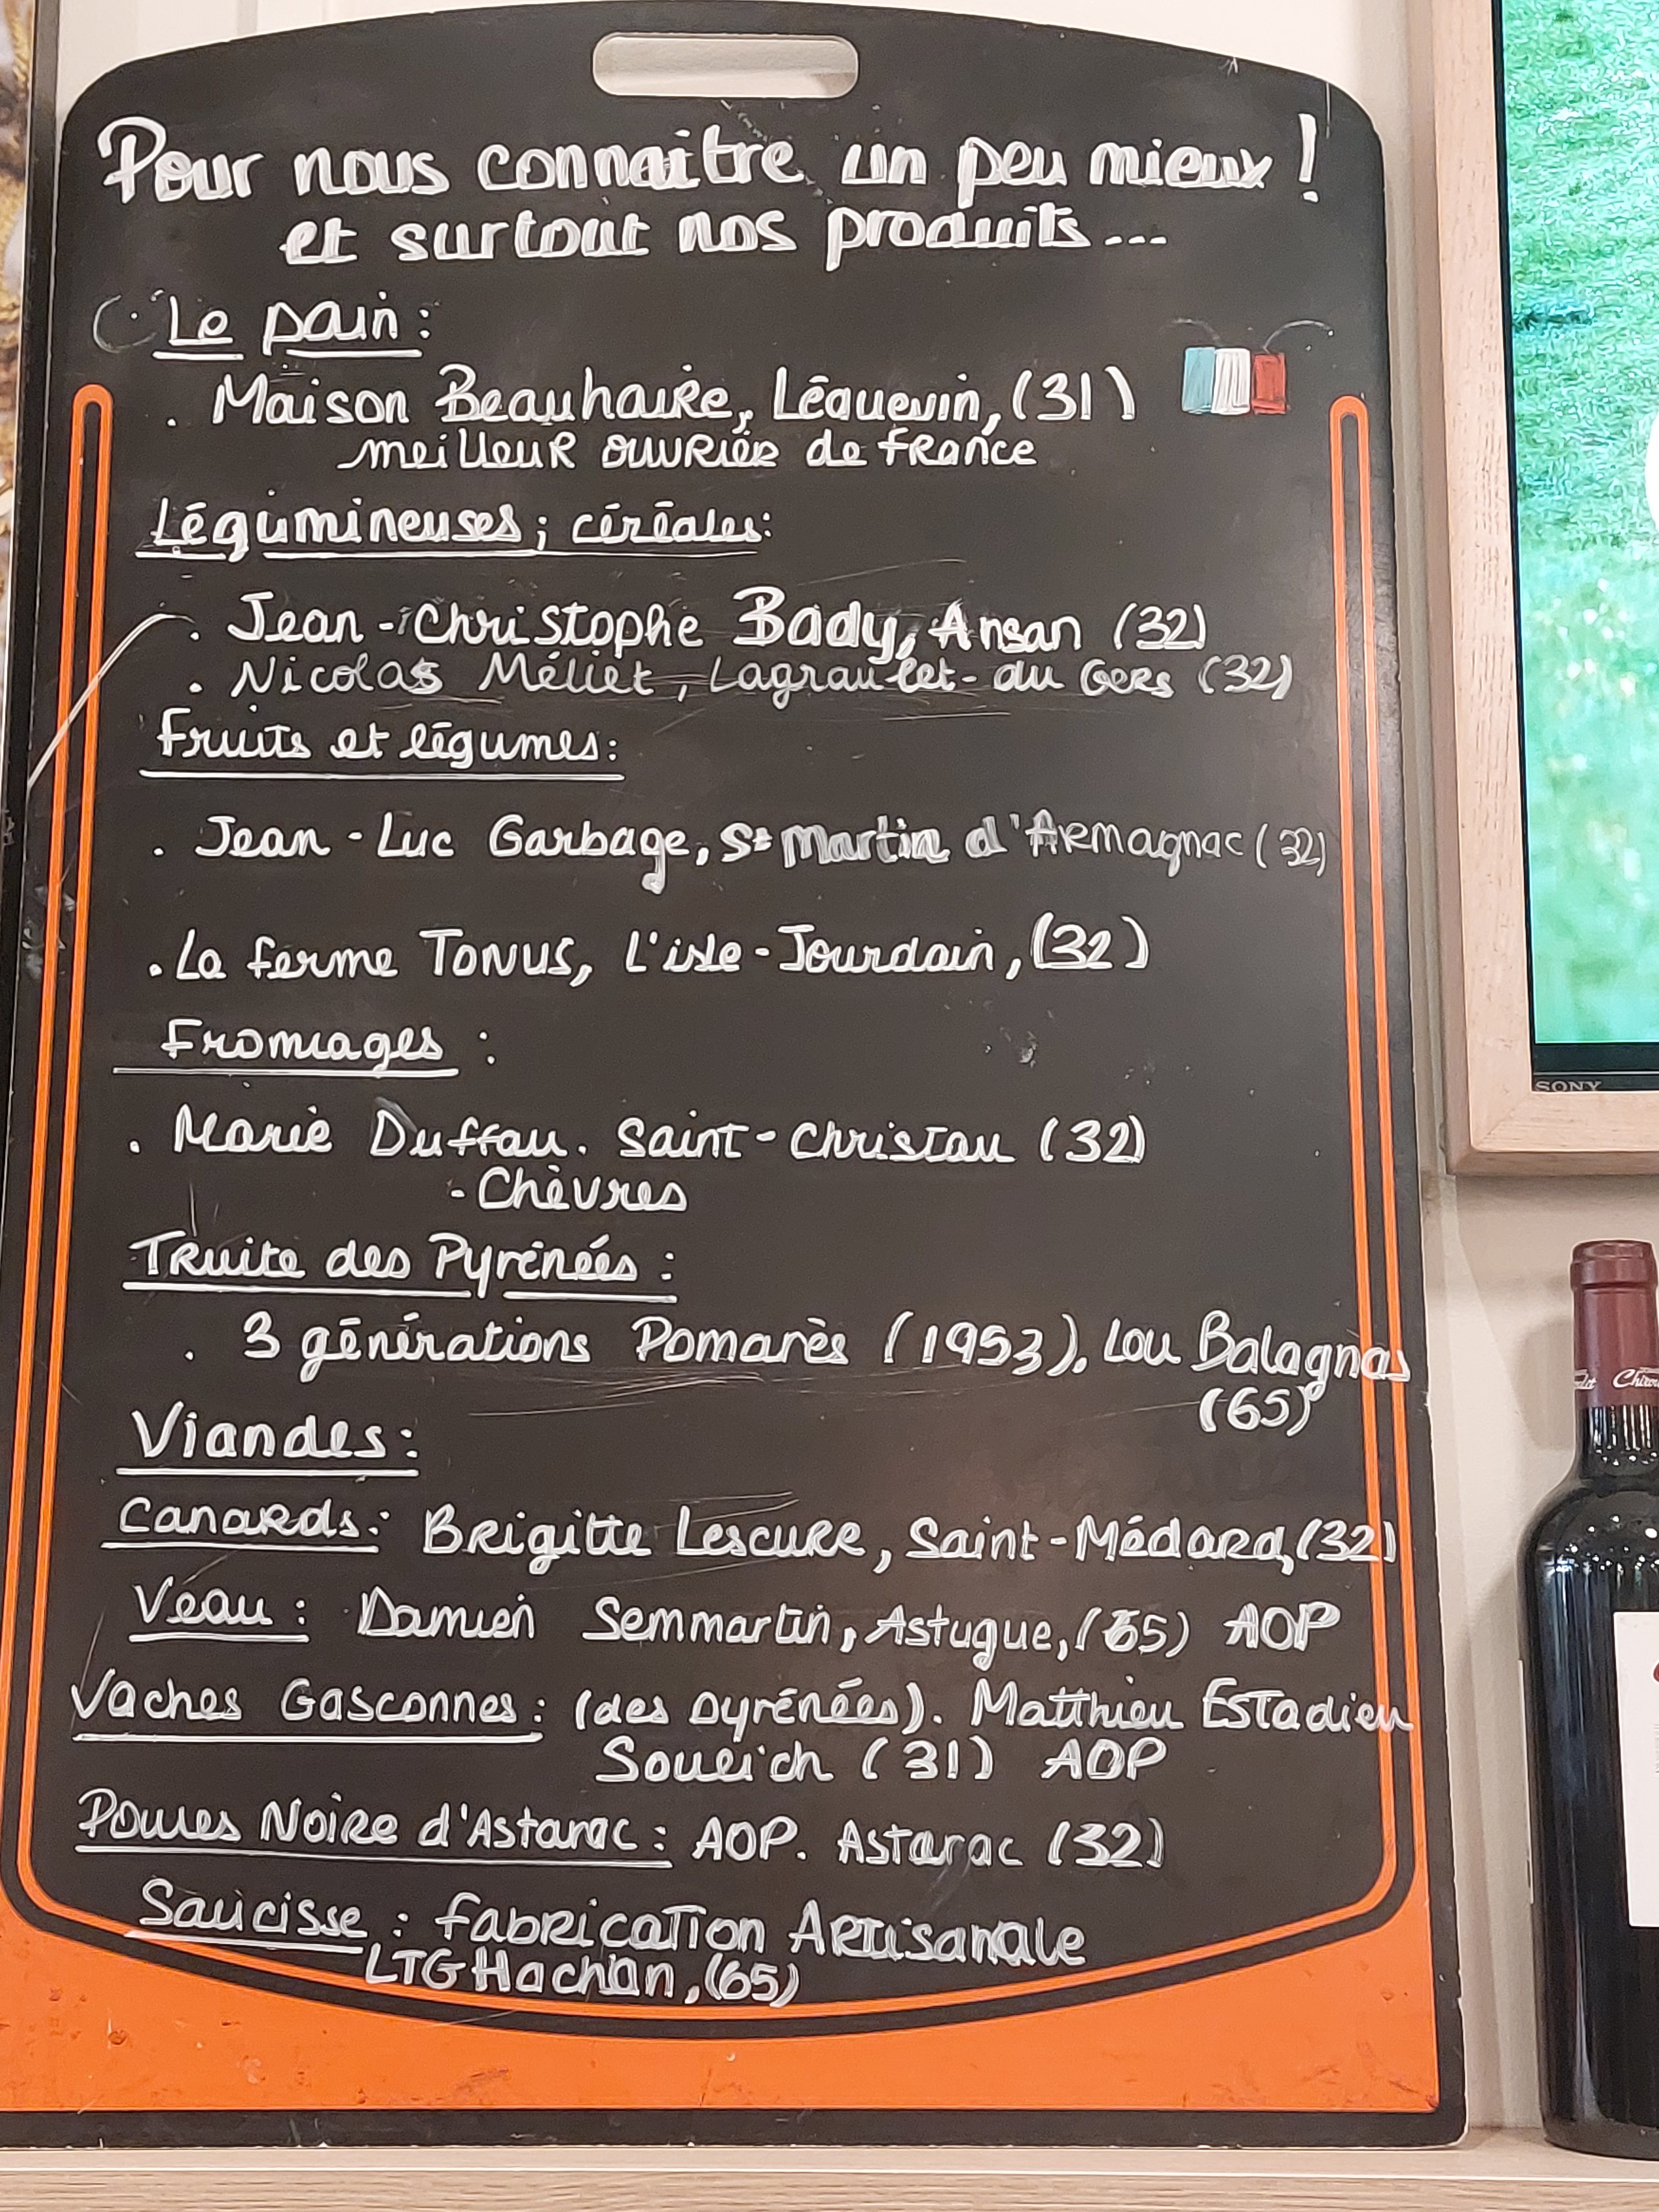 Pour nous connaitre un peu mieux !
et surtout nos produits...
Le pain :
. Maison Beauhaire, Léguevin, (31)
meilleur ouvrier de france
Légumineuses ; céréales:
. Jean-Christophe Bady, Ansan (32)
. Nicolas Méliet, Lagraulet-du Gers (32)
Fruits et légumes:
. Jean-Luc Garbage, St Martin d'Armagnac (32)
. La ferme TONUS, L'isle-Jourdain, (32)
Fromages :
. Marie Duffau. Saint-Christau (32)
- Chèvres
Truite des Pyrénées :
. 3 générations Pomarès (1953), Lou Balagnas
(65)
Viandes :
Canards : Brigitte Lescure, Saint-Médard, (32)
Veau : Damien Semmartin, Astugue, (65) AOP
Vaches Gasconnes : (des pyrénées). Matthieu Estadieu
Soueich (31) AOP
Poules Noire d'Astarac : AOP. Astarac (32)
Saucisse : fabrication Artisanale
LTG Hachan, (65)
SONY